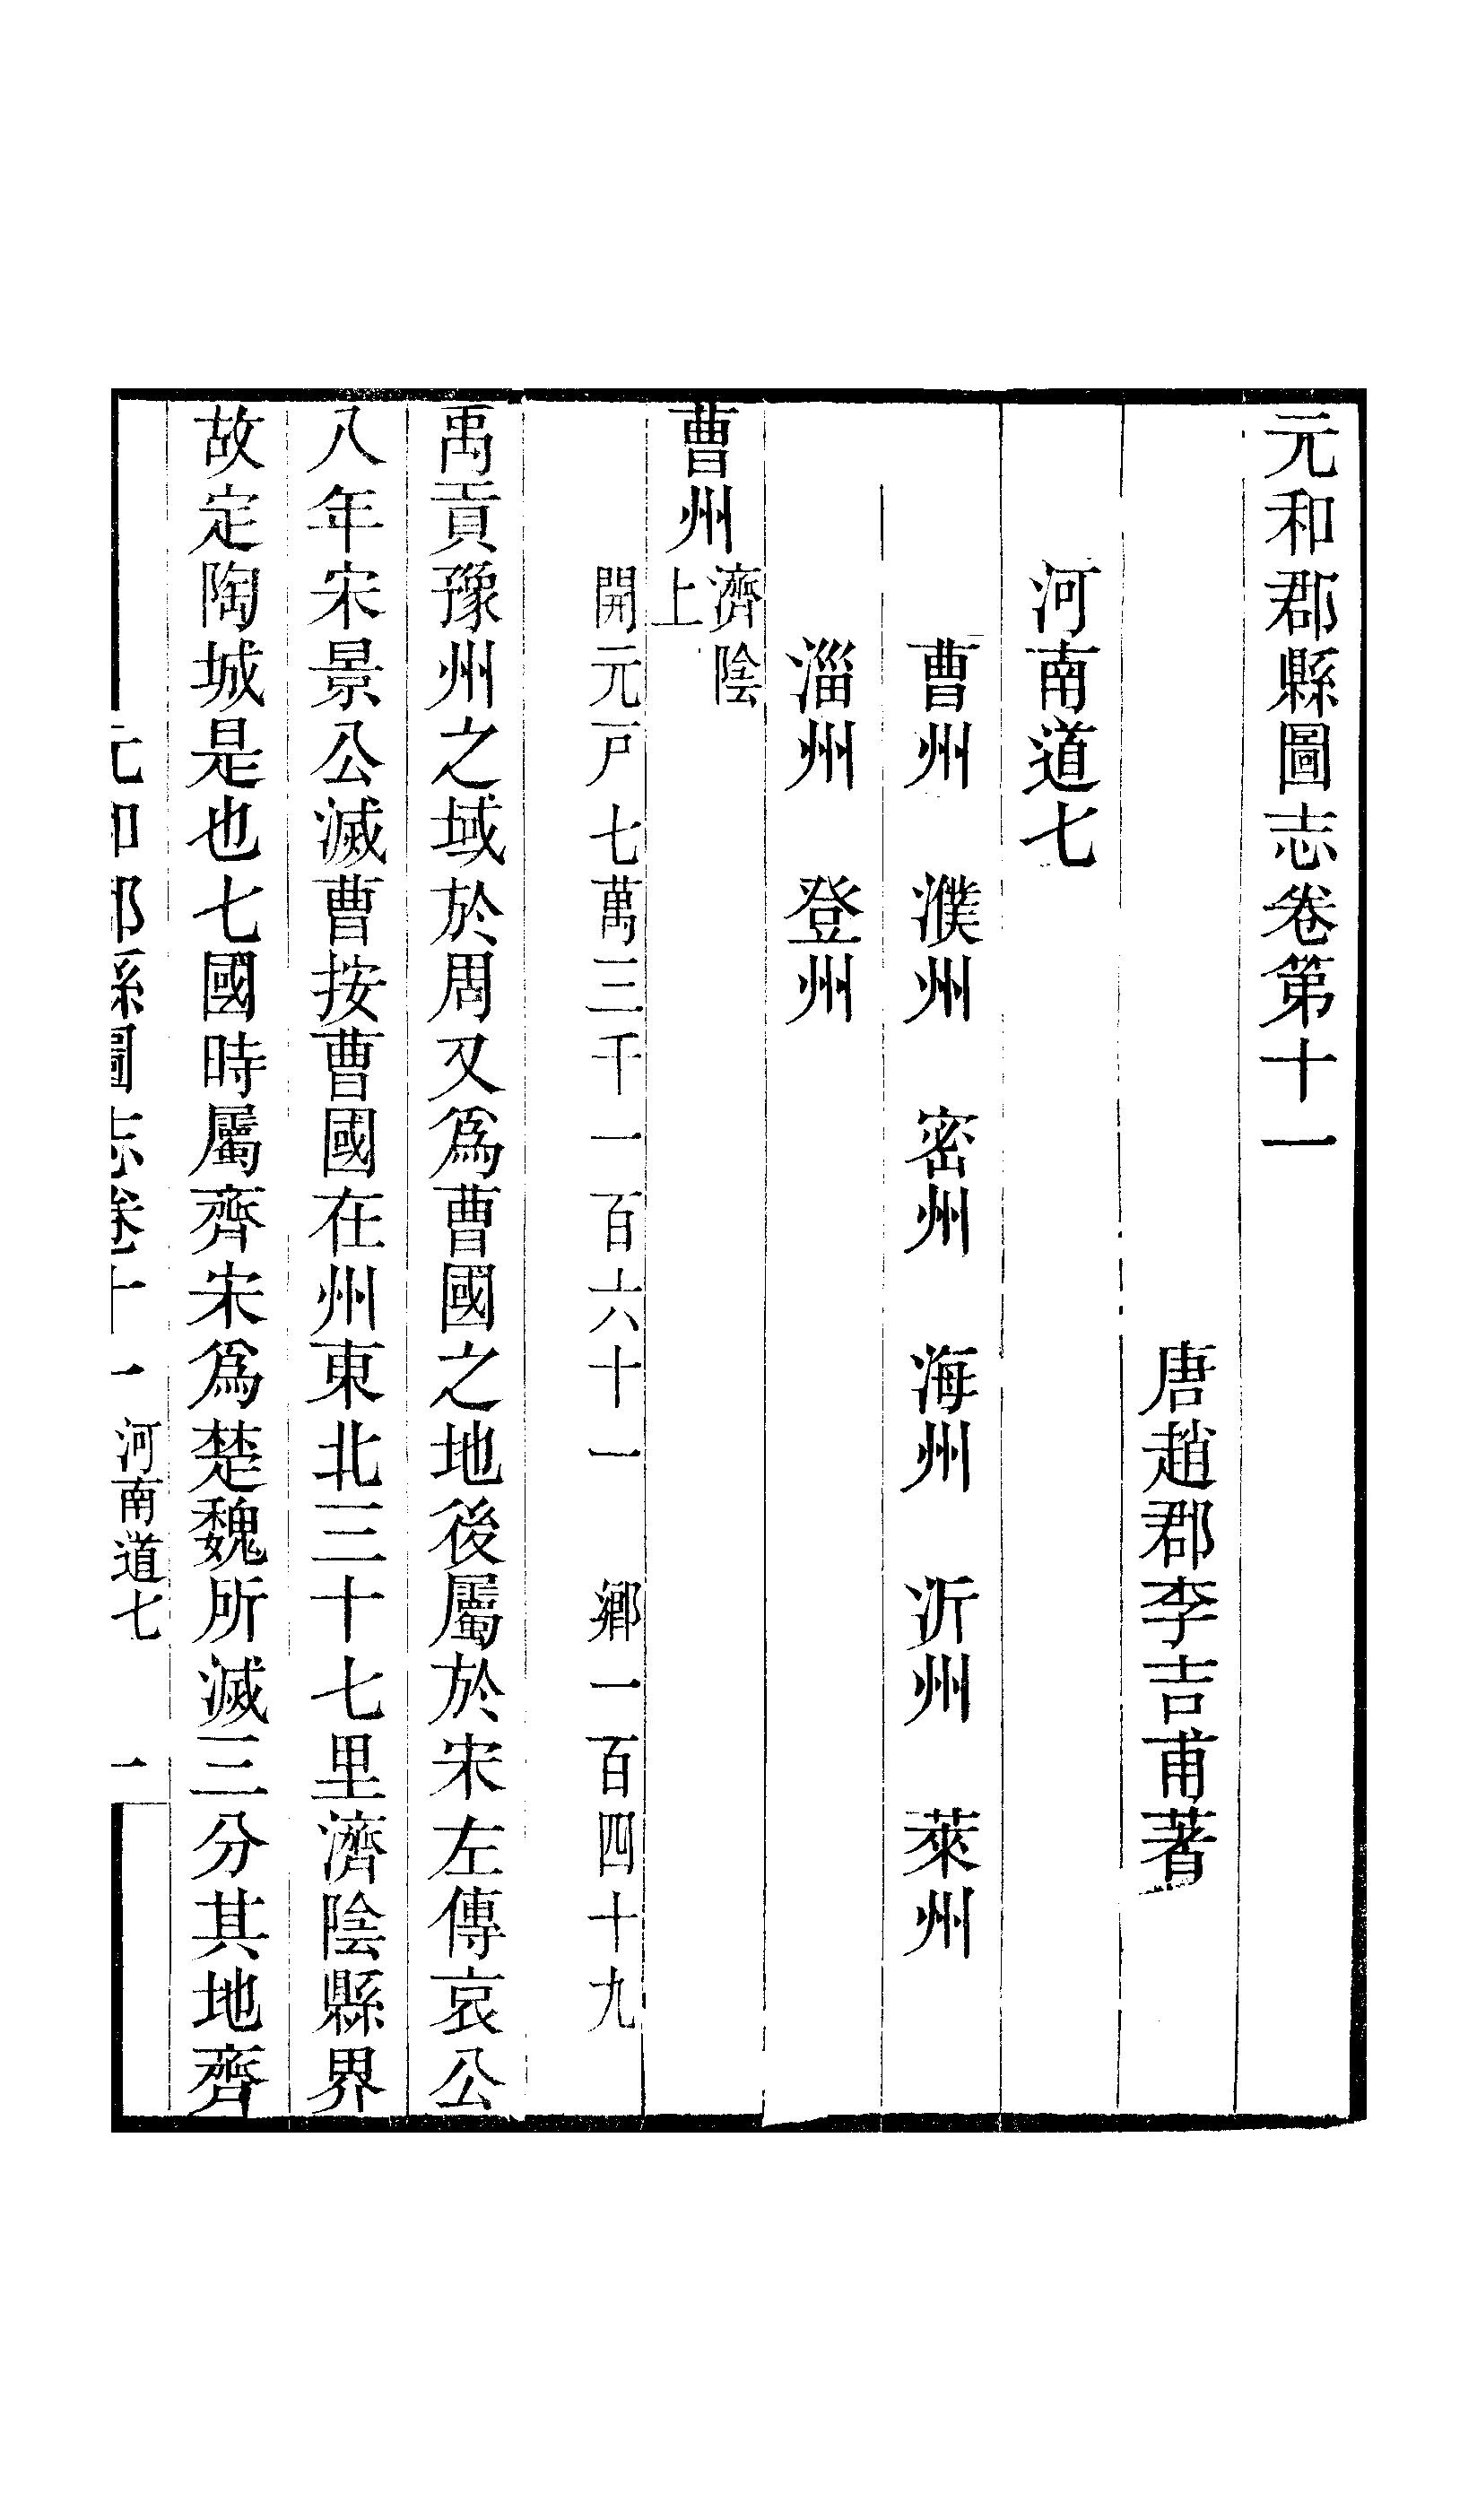 元和郡縣圖志卷第十一
唐趙郡李吉甫著
河南道七
曹州　濮州　密州　海州　沂州　萊州
淄州　登州
曹州濟陰上
開元戸七萬三千一百六十一　鄉一百四十九
禹貢豫州之域於周又爲曹國之地後屬於宋左傳哀公
八年宋景公滅曹按曹國在州東北三十七里濟陰縣界
故定陶城是也七國時屬齊宋爲楚魏所滅三分其地齊
元和郡縣圖志卷十一　河南道七　一